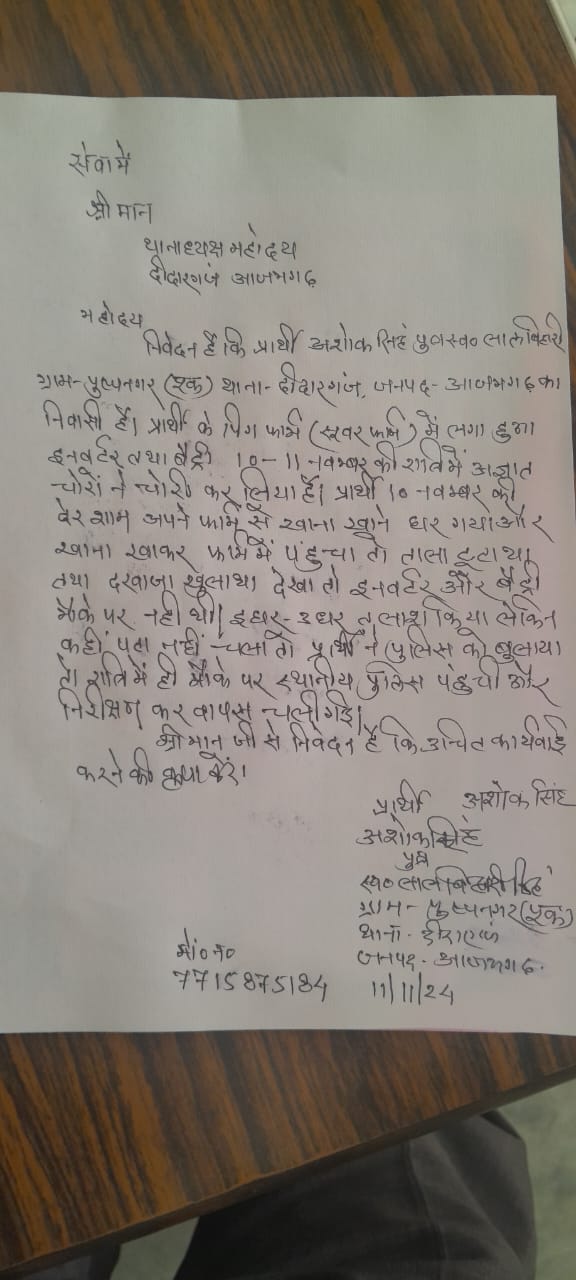 सेवा में
श्री मान
थानाध्यक्ष महोदय
दीदारगंज आजमगढ़
महोदय
निवेदन है कि प्रार्थी अशोक सिंह पुत्र स्व० लालबिहारी
ग्राम- पुष्पनगर (पूक) थाना- दीदारगंज, जनपद- आजमगढ़ का
निवासी है। प्रार्थी के पिग फार्म (सूवर फार्म) में लगा हुआ
इनवर्टर तथा बैट्री 10-11 नवम्बर की रात्रि में अज्ञात
चोरों ने चोरी कर लिया है। प्रार्थी 10 नवम्बर को
देर शाम अपने फार्म से खाना खाने घर गया और
खाना खाकर फार्म में पहुंचा तो ताला टूटा था
तथा दरवाजा खुला था देखा तो इनवर्टर और बैट्री
मौके पर नही थी। इधर-उधर तलाश किया लेकिन
कहीं पता नहीं चला तो प्रार्थी ने पुलिस को बुलाया
तो रात्रि में ही मौके पर स्थानीय पुलिस पहुंची और
निरीक्षण कर वापस चली गई।
श्री मान जी से निवेदन है कि उचित कार्यवाई
करने की कृपा करें।
प्रार्थी अशोक सिंह
अशोक सिंह
पुत्र
स्व० लालबिहारी सिंह
ग्राम- पुष्पनगर (पूक)
थाना- दीदारगंज
जनपद- आजमगढ़.
मो० न०
7715875184 11/11/24